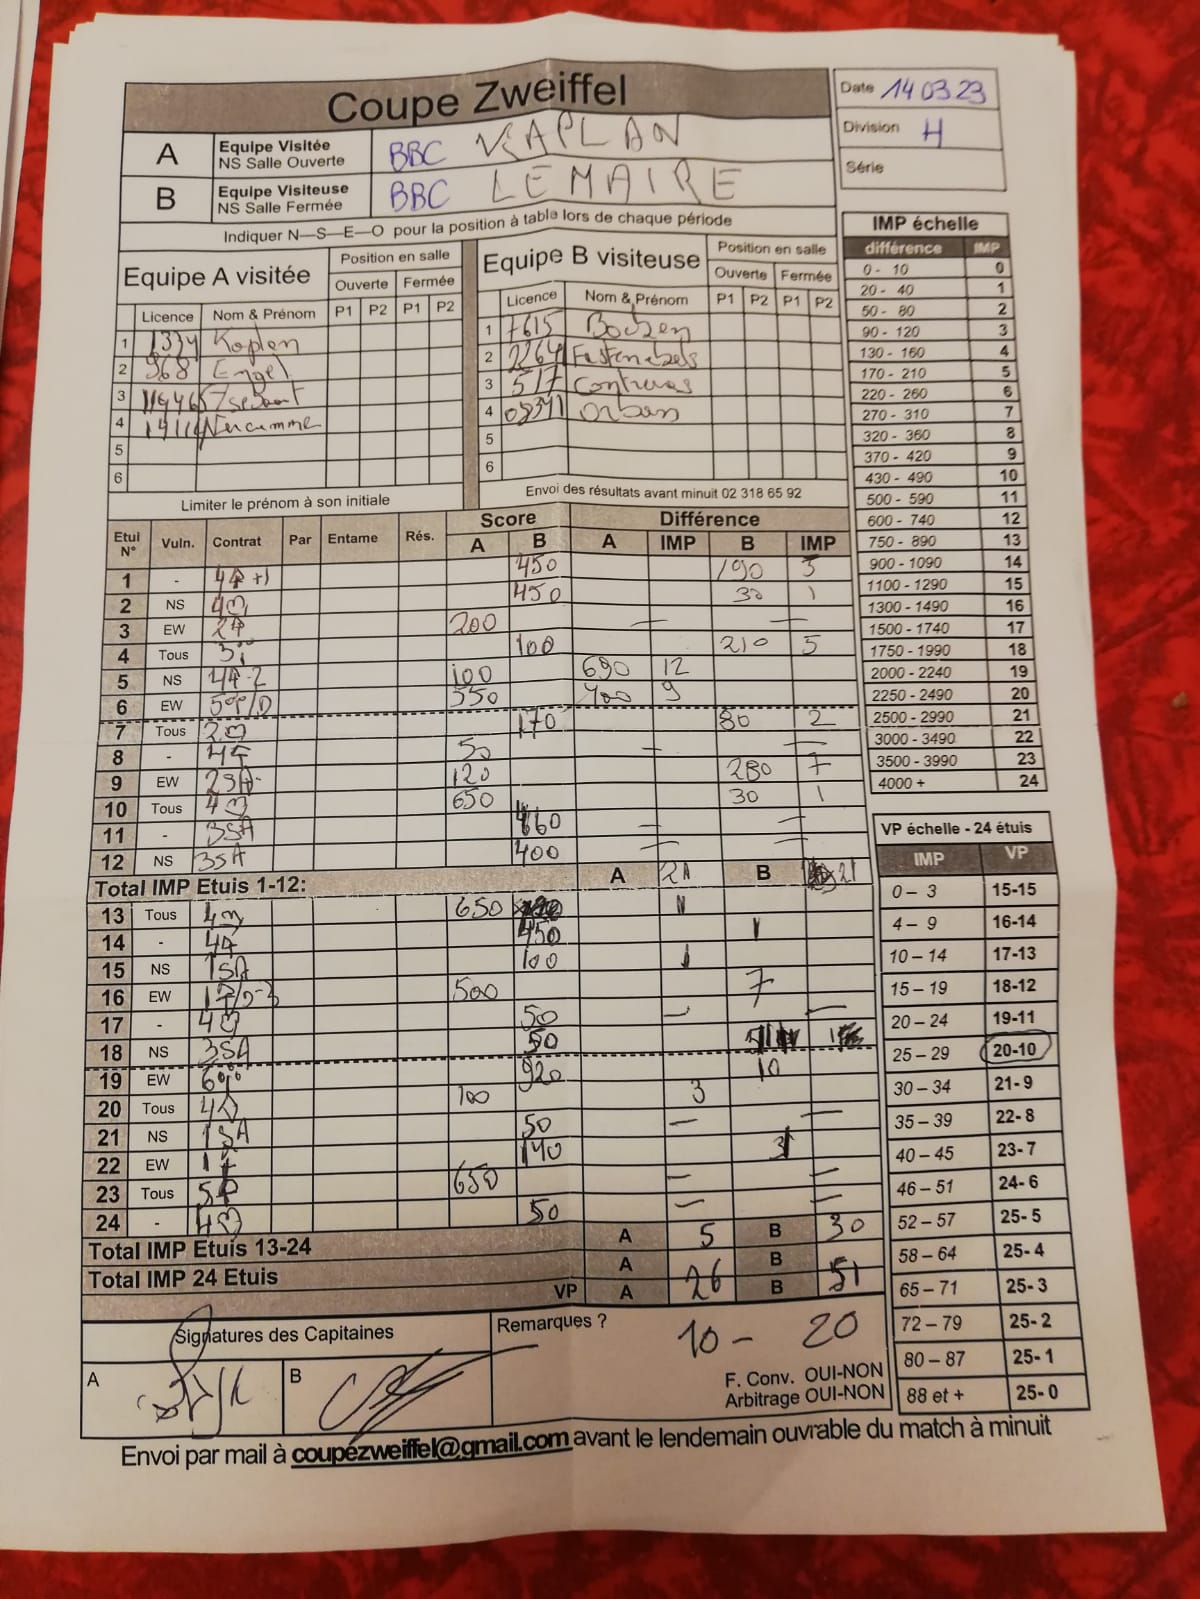 Coupe Zweiffel
Date 14 03 23
Division H
Série
A Equipe Visitée NS Salle Ouverte BBC KAPLAN
B Equipe Visiteuse NS Salle Fermée BBC LEMAIRE
Indiquer N—S—E—O pour la position à table lors de chaque période
Equipe A visitée Position en salle Equipe B visiteuse Position en salle
Ouverte Fermée Ouverte Fermée
Licence Nom & Prénom P1 P2 P1 P2 Licence Nom & Prénom P1 P2 P1 P2
1 1334 Kaplan 1 7615
2 968 Engel 2 2264
3 3 517 Contreras
4 4 Orban
5 5
6 6
Limiter le prénom à son initiale Envoi des résultats avant minuit 02 318 65 92
IMP échelle
différence IMP
0 - 10 0
20 - 40 1
50 - 80 2
90 - 120 3
130 - 160 4
170 - 210 5
220 - 260 6
270 - 310 7
320 - 360 8
370 - 420 9
430 - 490 10
500 - 590 11
600 - 740 12
750 - 890 13
900 - 1090 14
1100 - 1290 15
1300 - 1490 16
1500 - 1740 17
1750 - 1990 18
2000 - 2240 19
2250 - 2490 20
2500 - 2990 21
3000 - 3490 22
3500 - 3990 23
4000 + 24
Score Différence
Etui N° Vuln. Contrat Par Entame Rés. A B A IMP B IMP
1 - 4♠ +1 450 190 5
2 NS 4♡ 450 30 1
3 EW 2♠ 200 — —
4 Tous 100 210 5
5 NS 4♠-2 100 690 12
6 EW 550 400 9
7 Tous 2♡ 170 80 2
8 - 50 — —
9 EW 2SA 120 280 7
10 Tous 4♡ 650 30 1
11 - 3SA 460 — —
12 NS 3SA 400 — —
Total IMP Etuis 1-12: A 21 B 21
13 Tous 4♡ 650
14 - 4♠ 450 1
15 NS 1SA 100 1
16 EW 500 7
17 - 4♡ 50 — —
18 NS 3SA 50
19 EW 920 10
20 Tous 4♢ 100 3
21 NS 1SA 50 — —
22 EW 140 3
23 Tous 5♠ 650 — —
24 - 4♡ 50 — —
Total IMP Etuis 13-24 A 5 B 30
Total IMP 24 Etuis A 26 B 51
VP A B
VP échelle - 24 étuis
IMP VP
0 – 3 15-15
4 – 9 16-14
10 – 14 17-13
15 – 19 18-12
20 – 24 19-11
25 – 29 20-10
30 – 34 21-9
35 – 39 22-8
40 – 45 23-7
46 – 51 24-6
52 – 57 25-5
58 – 64 25-4
65 – 71 25-3
72 – 79 25-2
80 – 87 25-1
88 et + 25-0
Signatures des Capitaines Remarques ? 10 - 20
A B
F. Conv. OUI-NON
Arbitrage OUI-NON
Envoi par mail à coupezweiffel@gmail.com avant le lendemain ouvrable du match à minuit